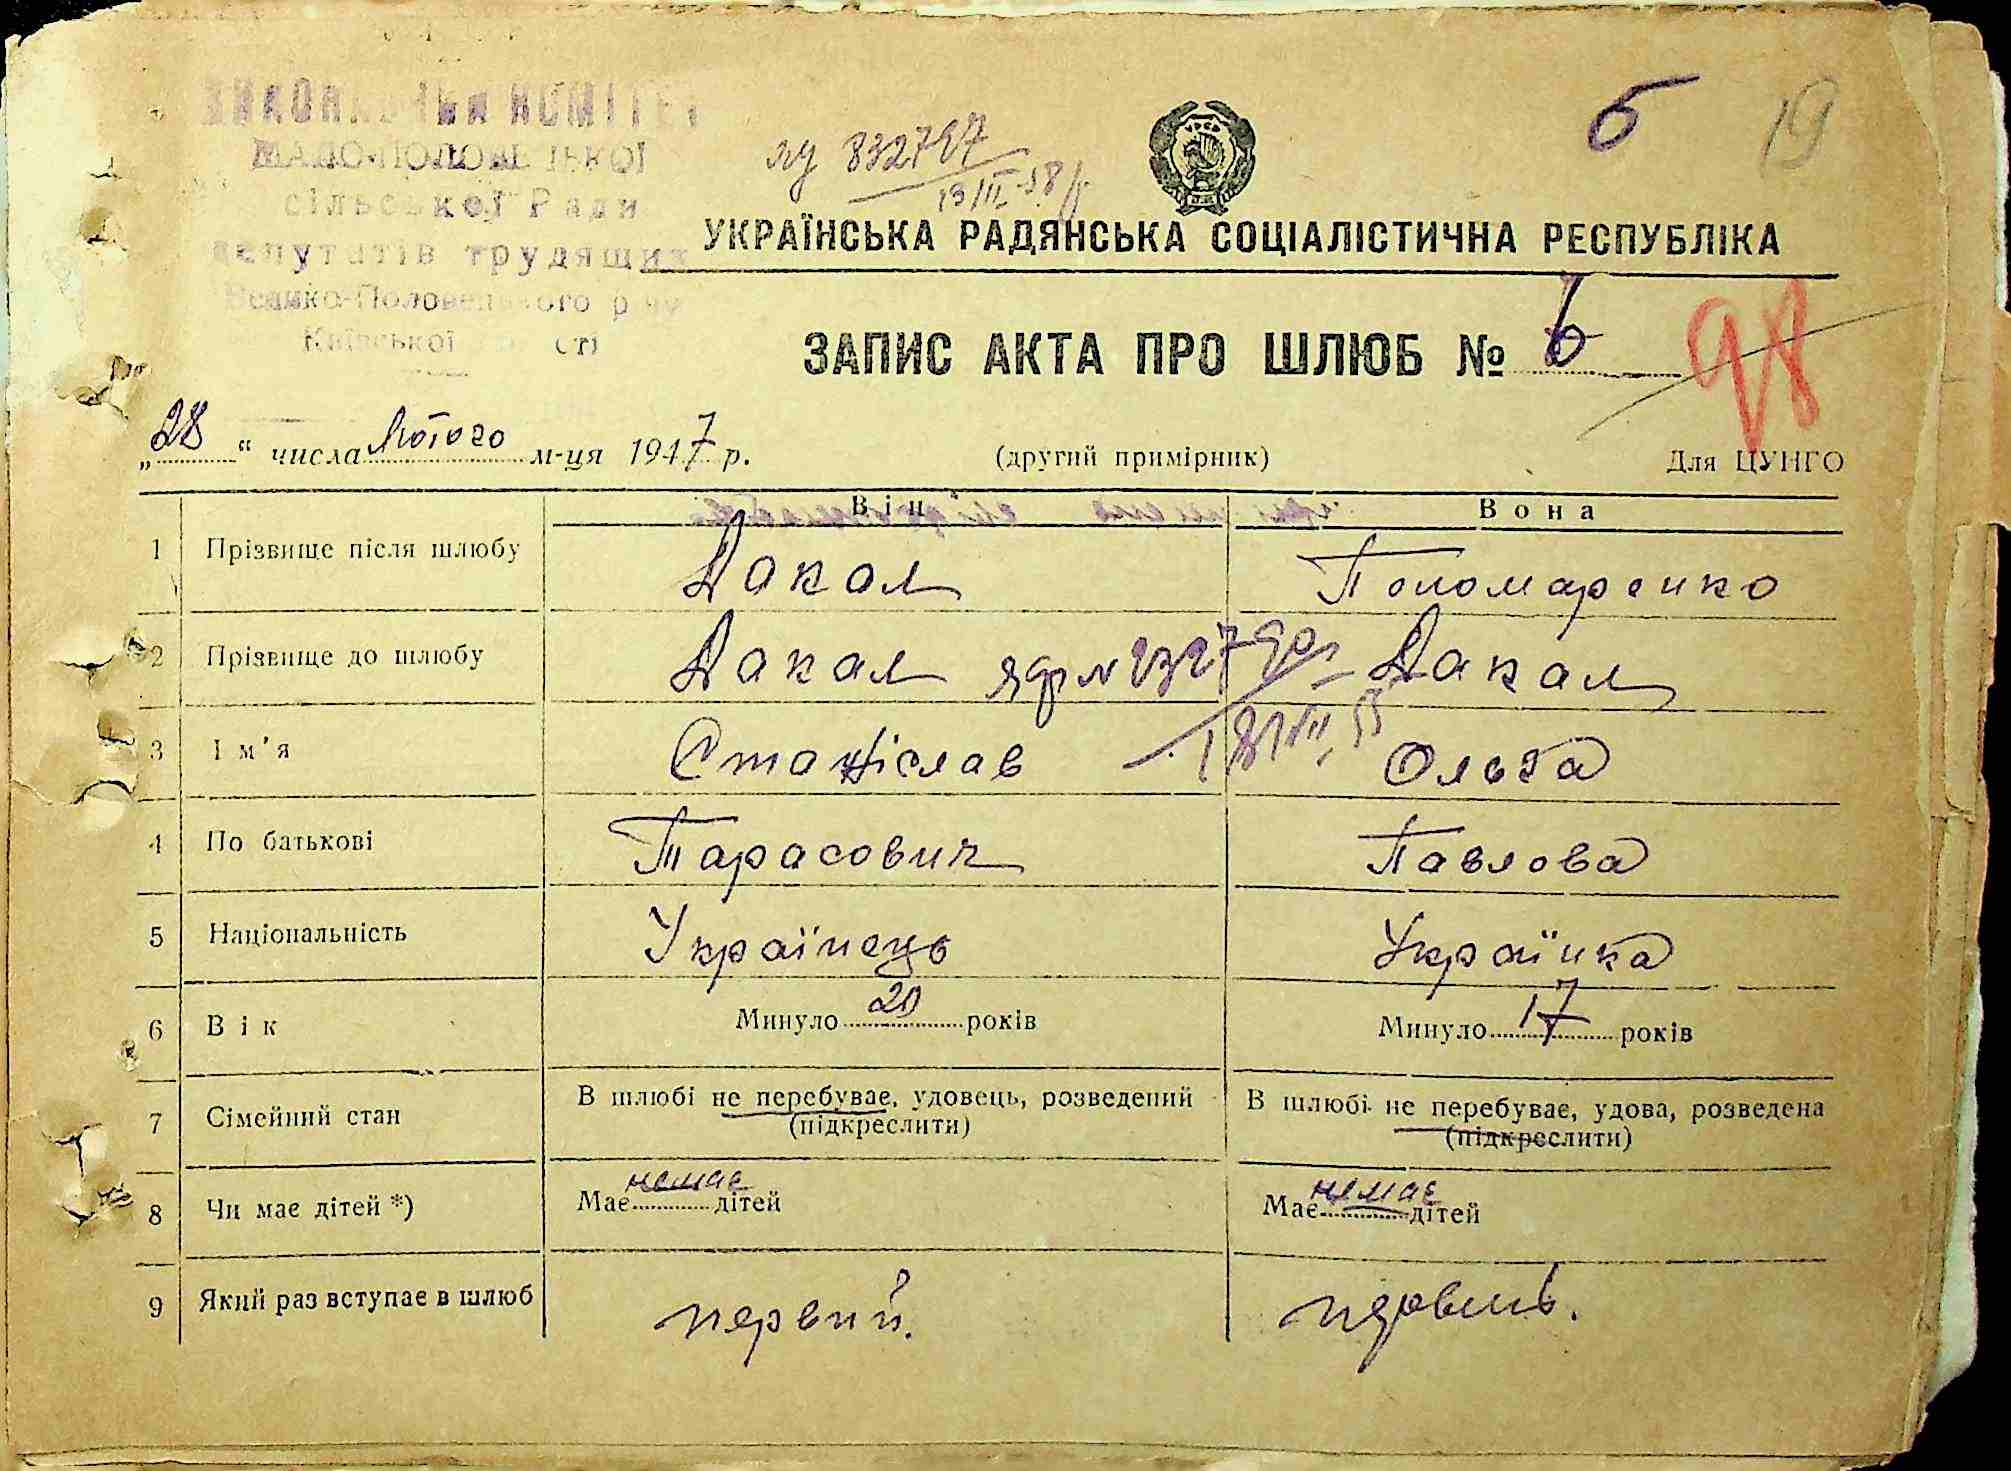 ВИКОНАВЧИЙ КОМІТЕТ
МАЛО-ПОЛОВЕЦЬКОЇ
сільської Ради
депутатів трудящих
Велико-Половецького р-ну
Київської області
6 19
832797
13/III-58
УКРАЇНСЬКА РАДЯНСЬКА СОЦІАЛІСТИЧНА РЕСПУБЛІКА
ЗАПИС АКТА ПРО ШЛЮБ № 6 98
„28“ числа Лютого м-ця 1947 р. (другий примірник) Для ЦУНГО
Він Вона
1 Прізвище після шлюбу Дакал Пономаренко
2 Прізвище до шлюбу Дакал Дакал
3 Ім'я Станіслав Ольга
4 По батькові Тарасович Павлова
5 Національність Українець Українка
6 Вік Минуло 20 років Минуло 17 років
7 Сімейний стан В шлюбі не перебуває, удовець, розведений (підкреслити) В шлюбі не перебуває, удова, розведена (підкреслити)
8 Чи має дітей *) Має немає дітей Має немає дітей
9 Який раз вступає в шлюб первий.